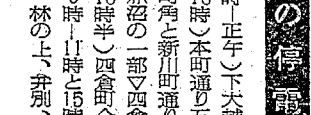 の停電
時―正午)下大越
時)本町通り五
町角と新川町通り
沼の一部▽四倉
時半)四倉町
時―11時と15時
林の上、弁別、